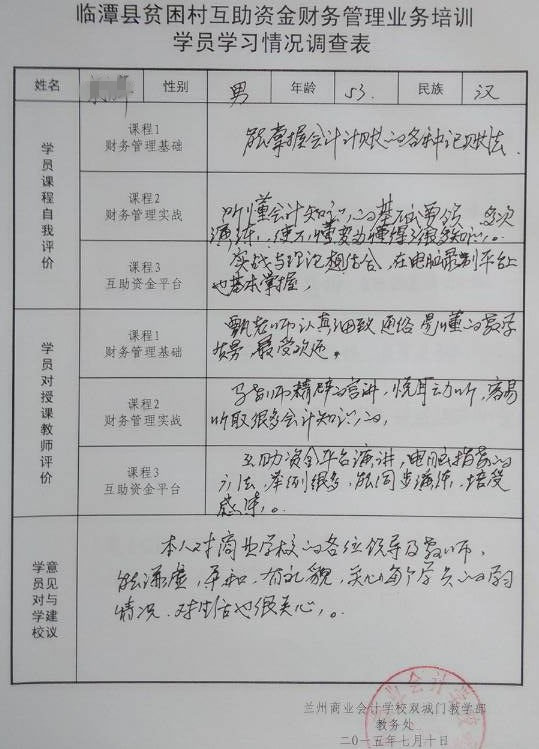 临潭县贫困村互助资金财务管理业务培训
学员学习情况调查表
姓名 性别 男 年龄 53. 民族 汉
学员课程自我评价
课程1
财务管理基础
能掌握会计计账的各种记账法.
课程2
财务管理实战
听懂会计知识,的基本要领 多次
演练,使不懂变为懂得了很多知识,。
课程3
互助资金平台
实战与理论想结合,在电脑录制平台上
也基本掌握,
学员对授课教师评价
课程1
财务管理基础
甄老师认真细致 通俗易懂的教学
最受欢迎。
课程2
财务管理实战
教师精辟的宣讲,悦耳动听,容易
听取很多会计知识的,
课程3
互助资金平台
互助资金平台演讲,电脑指导的
方法,举例很多,能同步演练,倍受
感谏,。
学员对学校意见与建议
本人对商业学校的各位领导及教师,
能谦虚,平和,有礼貌,关心每个学员的学习
情况.对生活也很关心,。
兰州商业会计学校双城门教学部
教务处
二〇一五年七月十日